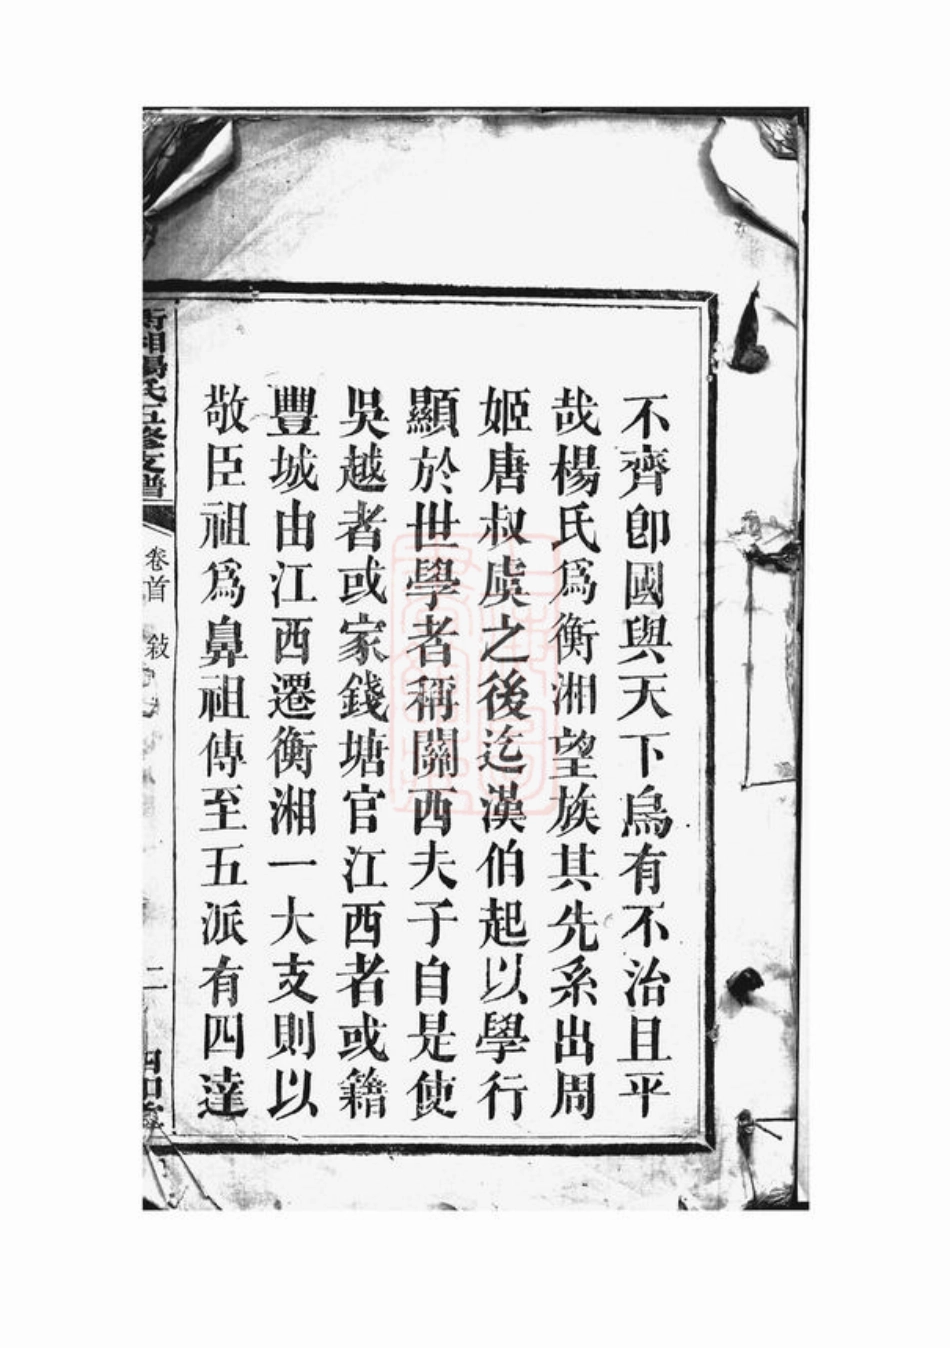 不齊卽國與天下烏有不治且平
哉楊氏爲衡湘望族其先系出周
姬唐叔虞之後迄漢伯起以學行
顯於世學者稱關西夫子自是使
吳越者或家錢塘官江西者或籍
豐城由江西遷衡湘一大支則以
敬臣祖爲鼻祖傳至五派有四達
衡湘楊氏五修支譜
卷首 敍
二